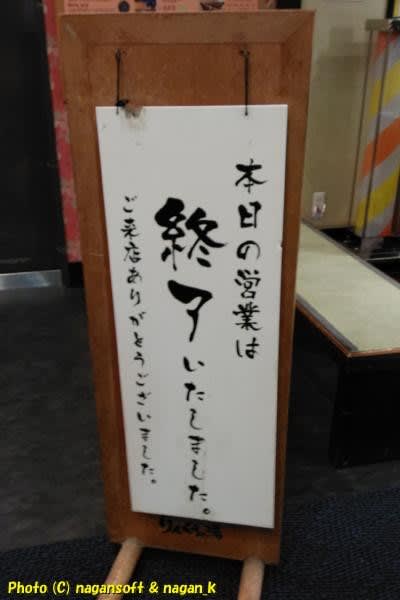 本日の営業は
終了いたしました。
ご来店ありがとうございました。
Photo (C) nagansoft & nagan_k